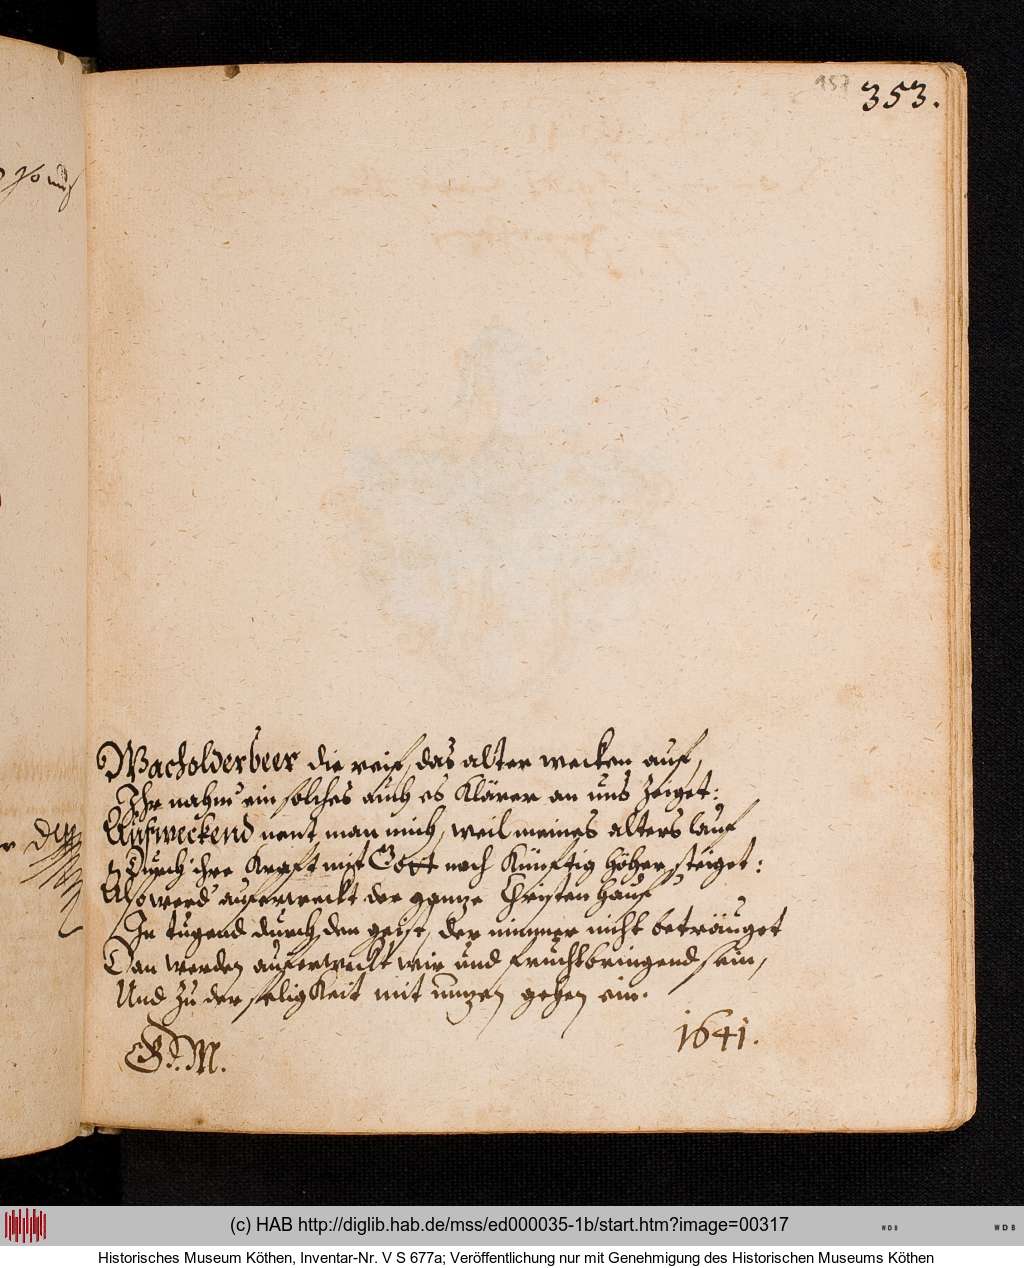 353.
Wacholderbeer die reif, das alter wecken auf,
Ihr nahm' ein solches auch es klärer an uns zeiget:
Aufweckend nent man mich, weil meines alters lauf
Durch ihre Kraft mit Gott noch künftig höher steiget:
Also werd' auferweckt der gantze Christen hauf
In tugend durch den geist, der nimmer nicht beträuget
Dan werden auferweckt wir und fruchtbringend sein,
Und zu der seligkeit mit nutzen gehen ein.
1641.
(c) HAB http://diglib.hab.de/mss/ed000035-1b/start.htm?image=00317
WDB
WDB
Historisches Museum Köthen, Inventar-Nr. V S 677a; Veröffentlichung nur mit Genehmigung des Historischen Museums Köthen